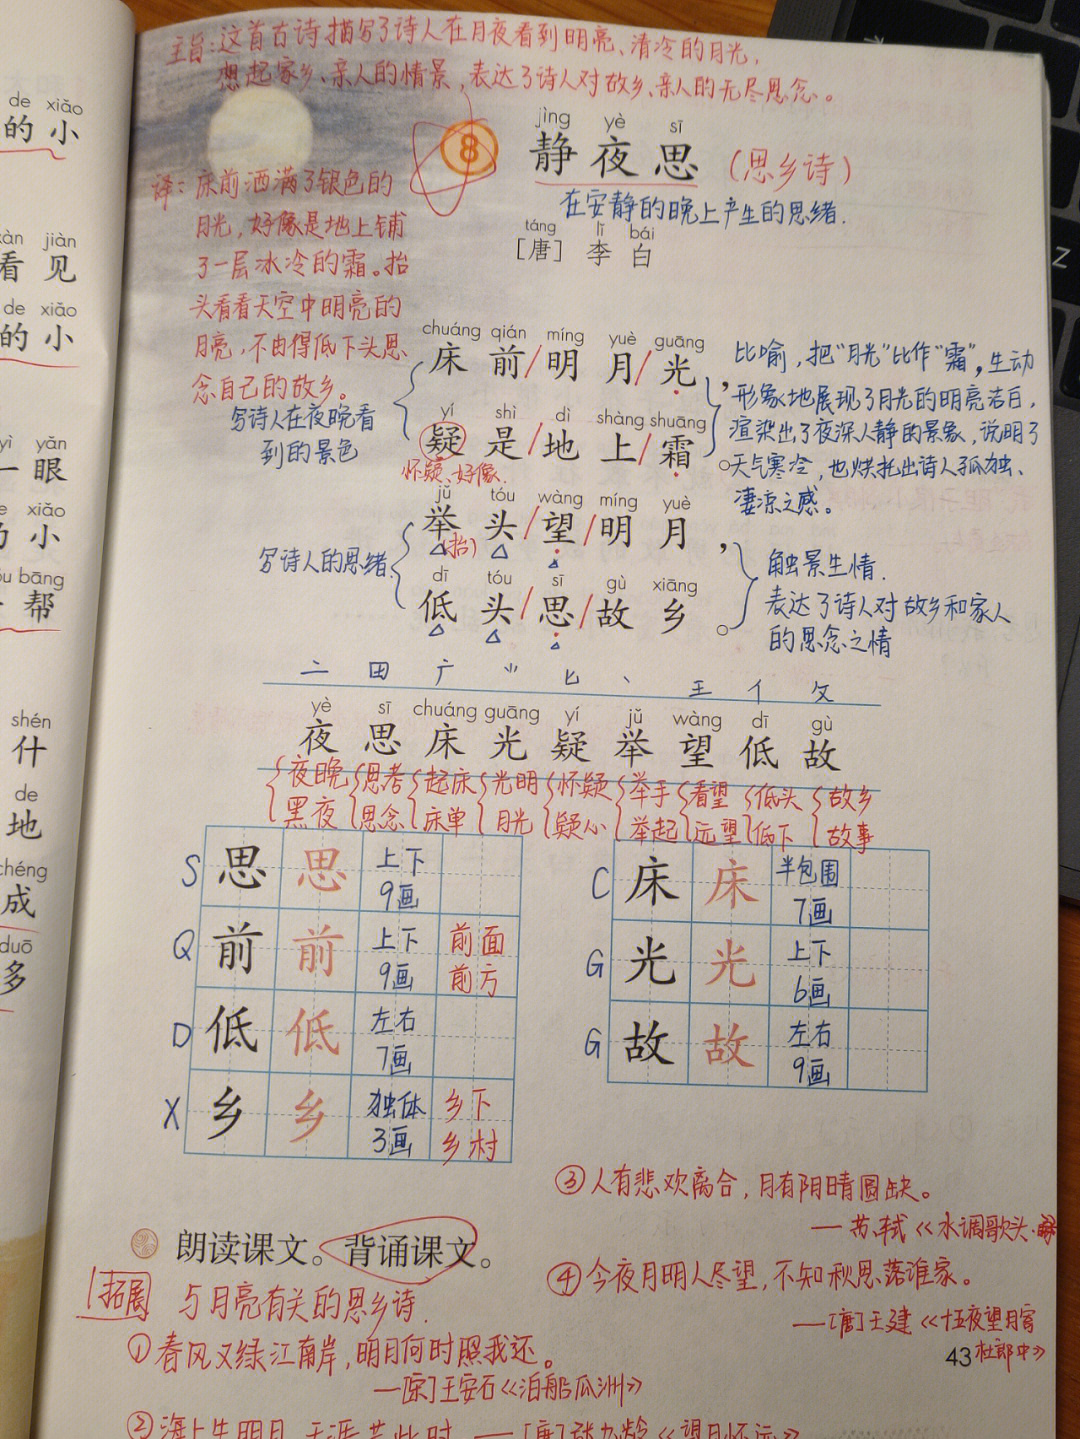 主旨:这首古诗描写了诗人在月夜看到明亮、清冷的月光,
想起家乡、亲人的情景,表达了诗人对故乡、亲人的无尽思念。
jìng yè sī
8 静夜思 (思乡诗)
在安静的晚上产生的思绪.
táng lǐ bái
[唐] 李白
译:床前洒满了银色的
月光,好像是地上铺
了一层冰冷的霜。抬
头看看天空中明亮的
月亮,不由得低下头思
念自己的故乡。
chuáng qián míng yuè guāng
床前/明月/光,
yí shì dì shàng shuāng
疑是/地上/霜。
怀疑、好像.
写诗人在夜晚看
到的景色
比喻,把“月光”比作“霜”,生动
形象地展现了月光的明亮洁白,
渲染出了夜深人静的景象,说明了
天气寒冷,也烘托出诗人孤独、
凄凉之感。
jǔ tóu wàng míng yuè
举头/望/明月,
(抬)
dī tóu sī gù xiāng
低头/思/故乡。
写诗人的思绪.
触景生情.
表达了诗人对故乡和家人
的思念之情
亠 田 广 ⺌ 匕 丶 王 亻 攵
yè sī chuáng guāng yí jǔ wàng dī gù
夜 思 床 光 疑 举 望 低 故
夜晚 思考 起床 光明 怀疑 举手 看望 低头 故乡
黑夜 思念 床单 月光 疑心 举起 远望 低下 故事
S 思 思 上下 9画
Q 前 前 上下 9画 前面 前方
D 低 低 左右 7画
X 乡 乡 独体 3画 乡下 乡村
C 床 床 半包围 7画
G 光 光 上下 6画
G 故 故 左右 9画
朗读课文。背诵课文。
拓展 与月亮有关的思乡诗.
①春风又绿江南岸,明月何时照我还。
—[宋]王安石《泊船瓜洲》
②海上生明月,天涯共此时. —[唐]张九龄《望月怀远》
③人有悲欢离合,月有阴晴圆缺。
—苏轼《水调歌头·
④今夜月明人尽望,不知秋思落谁家。
—[唐]王建《十五夜望月寄
杜郎中》
43
de xiǎo
的小
kàn jiàn
看见
de xiǎo
的小
yì yǎn
一眼
xiǎo
小
bāng
帮
shén
什
de
地
chéng
成
duō
多